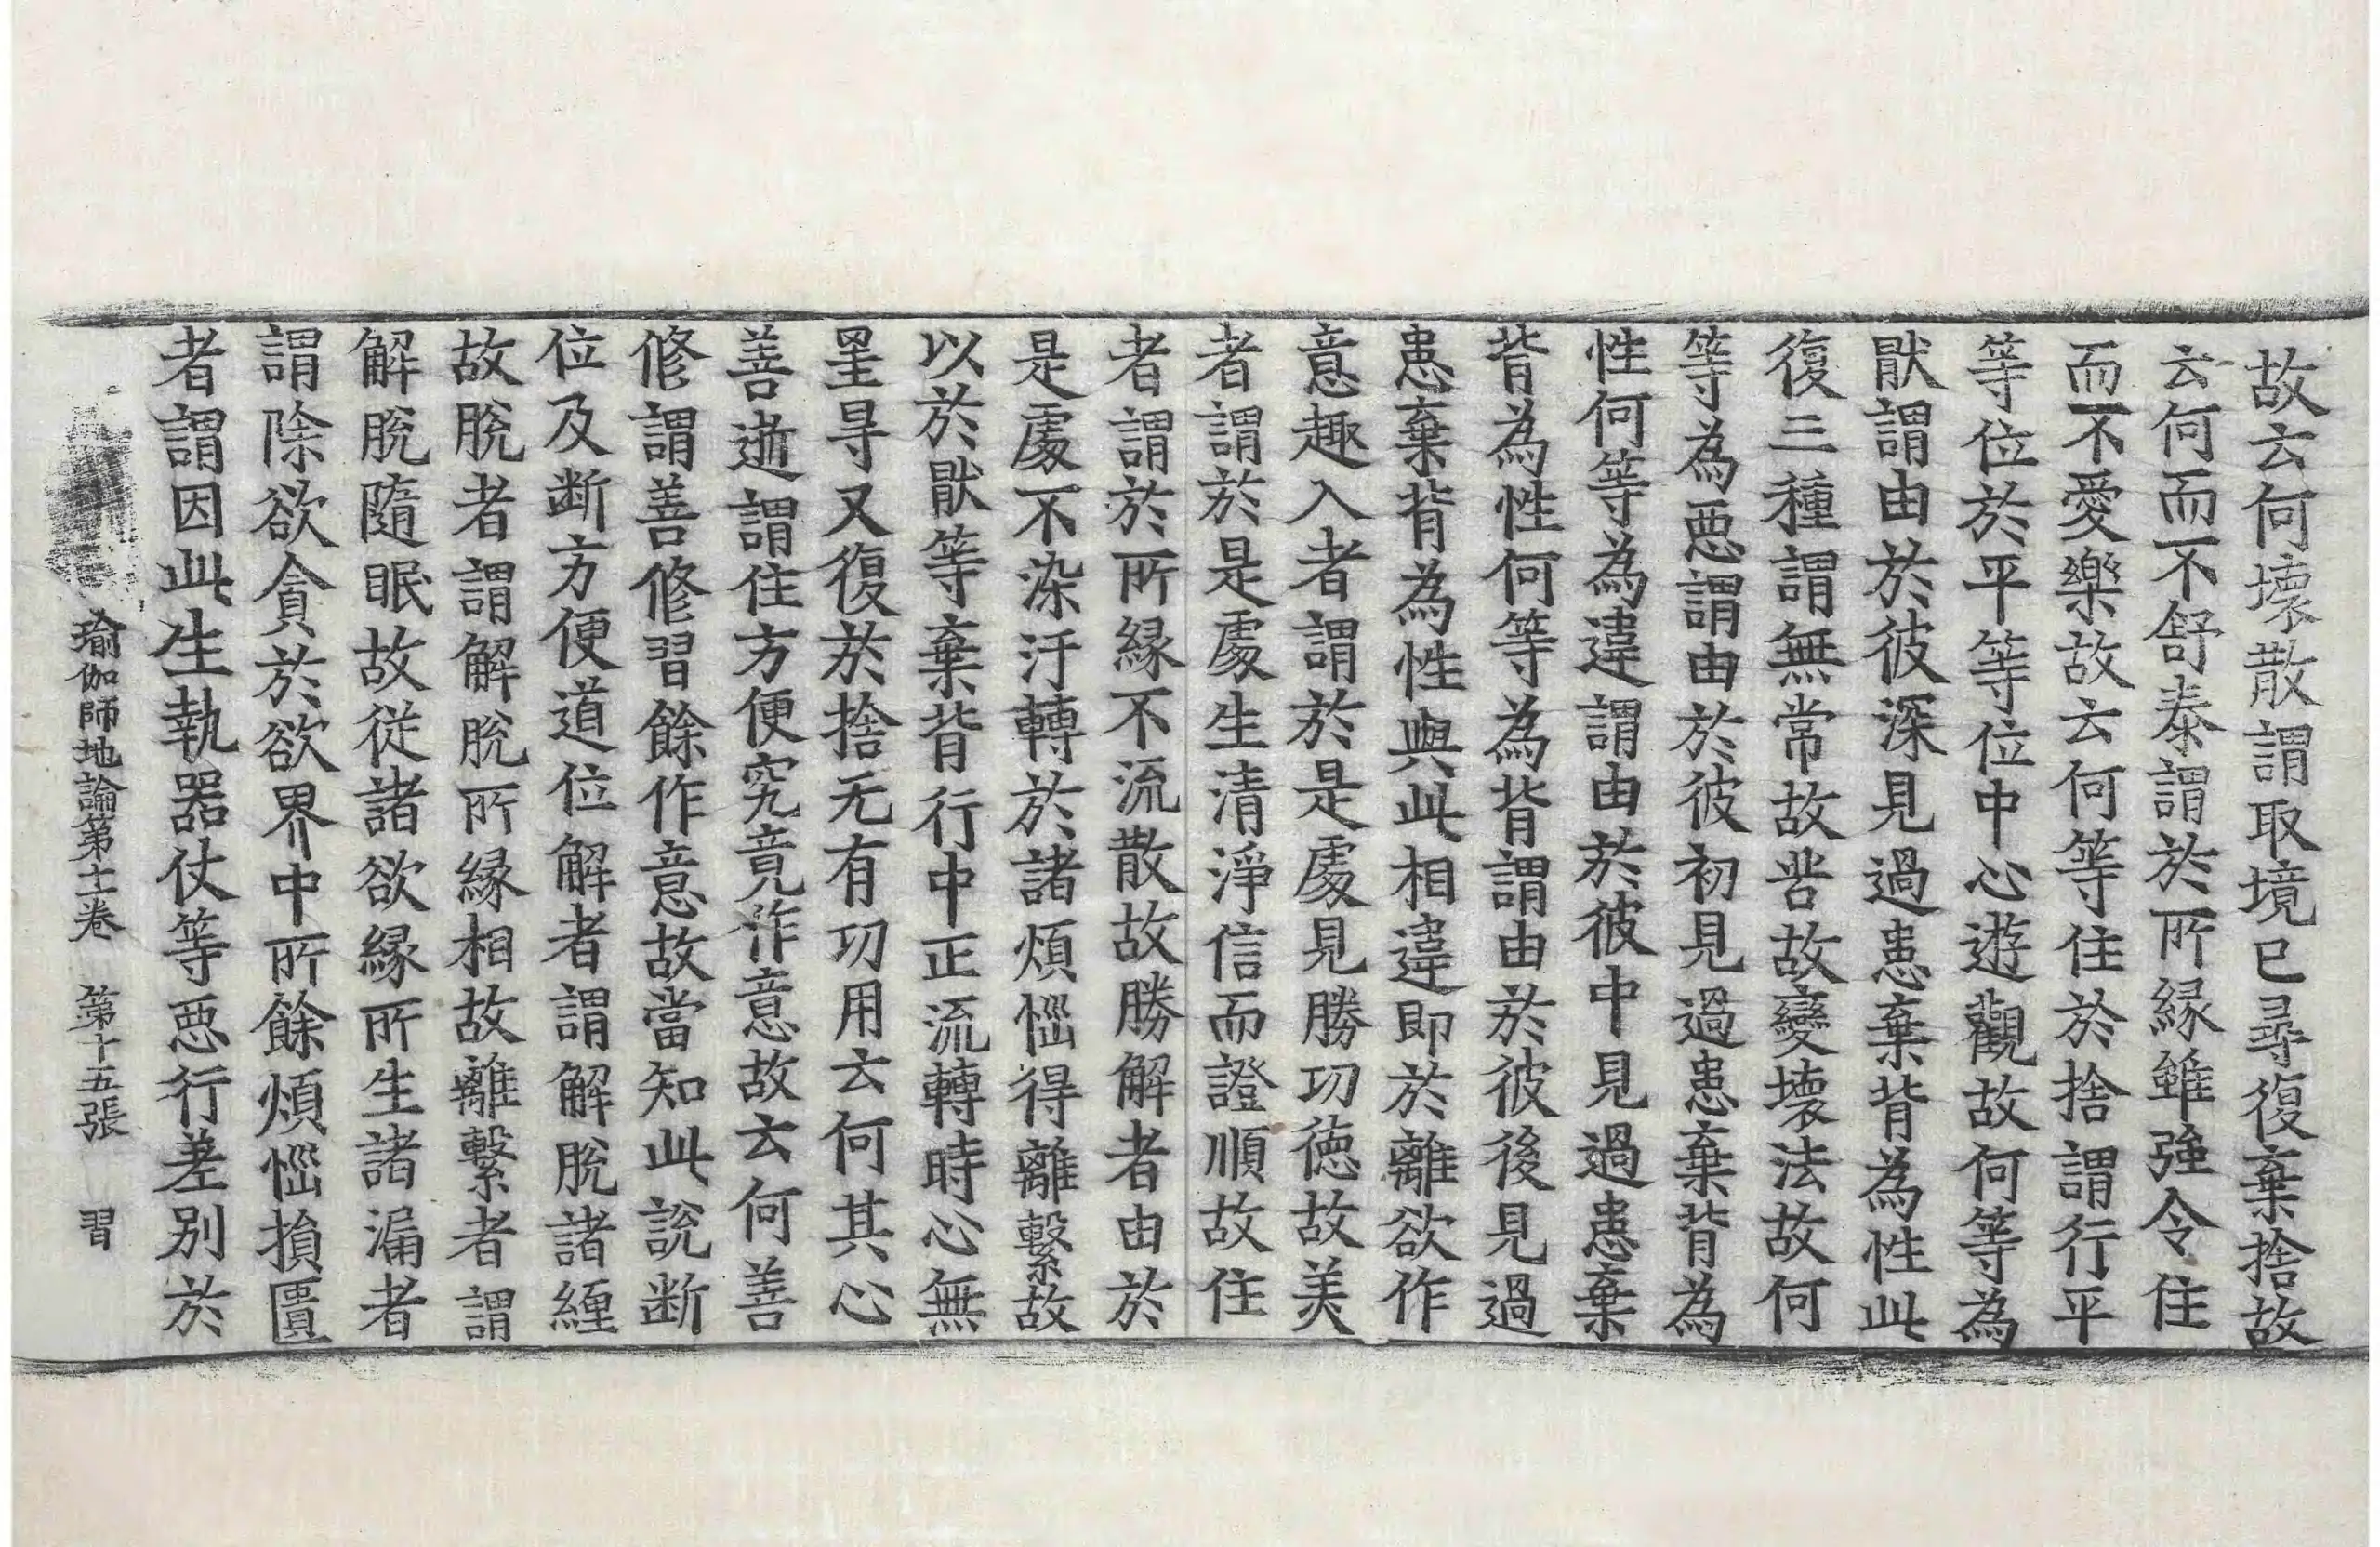 故云何壞散謂取境已尋復棄捨故
云何而不舒泰謂於所緣雖強令住
而不愛樂故云何等住於捨謂行平
等位於平等位中心遊觀故何等為
猒謂由於彼深見過患棄背為性此
復三種謂無常故苦故變壞法故何
等為惡謂由於彼初見過患棄背為
性何等為違謂由於彼中見過患棄
背為性何等為背謂由於彼後見過
患棄背為性與此相違即於離欲作
意趣入者謂於是處見勝功德故美
者謂於是處生清淨信而證順故住
者謂於所緣不流散故勝解者由於
是處不染汙轉於諸煩惱得離繫故
以於猒等棄背行中正流轉時心無
罣㝵又復於捨无有功用云何其心
善逝謂住方便究竟作意故云何善
修謂善修習餘作意故當知此說断
位及断方便道位解者謂解脫諸纏
故脫者謂解脫所緣相故離繫者謂
解脫隨眠故從諸欲緣所生諸漏者
謂除欲貪於欲界中所餘煩惱損匱
者謂因此生執器仗等惡行差別於
瑜伽師地論第十一卷　第十五張　習